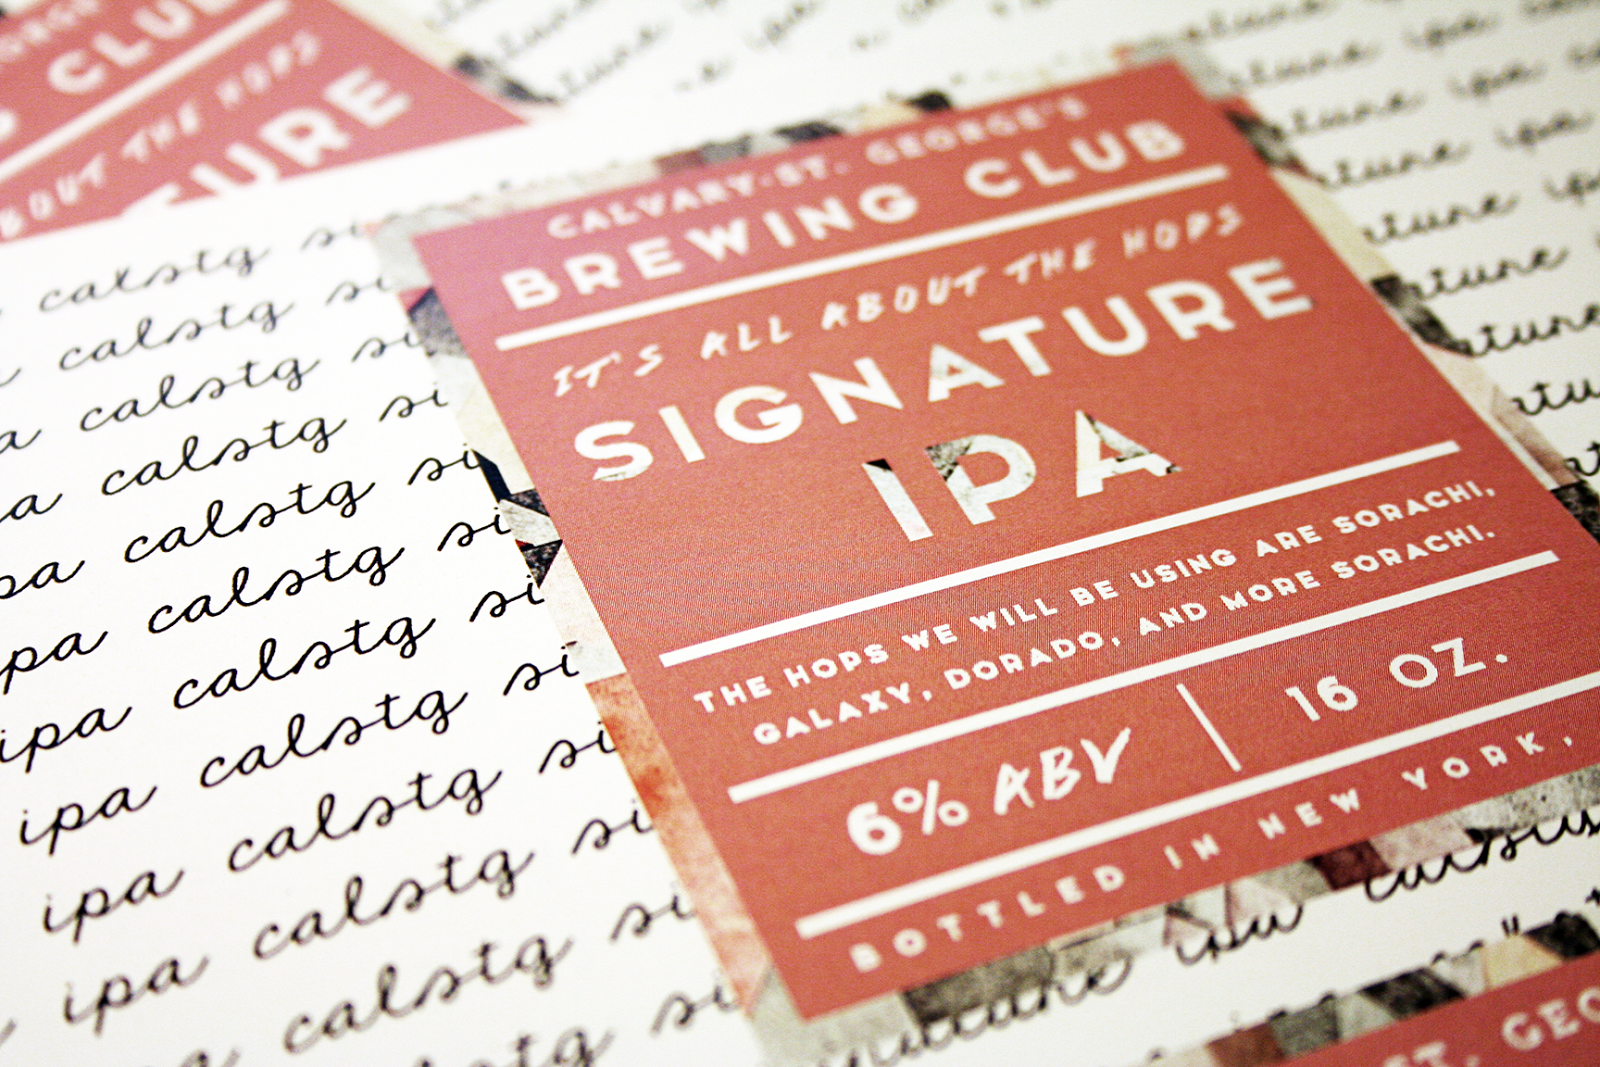 GEORGE
S CLUB
ABOUT THE HOPS
TURE
CALVARY-ST. GEORGE'S
BREWING CLUB
IT'S ALL ABOUT THE HOPS
SIGNATURE
IPA
THE HOPS WE WILL BE USING ARE SORACHI,
GALAXY, DORADO, AND MORE SORACHI.
6% ABV | 16 OZ.
BOTTLED IN NEW YORK,
calstg si
calstg si
a calstg si
a calstg si
pa calstg si
pa calstg si
ipa calstg si
ipa calstg si
ipa calstg si
ipa calstg si
calstg
ST. GEO